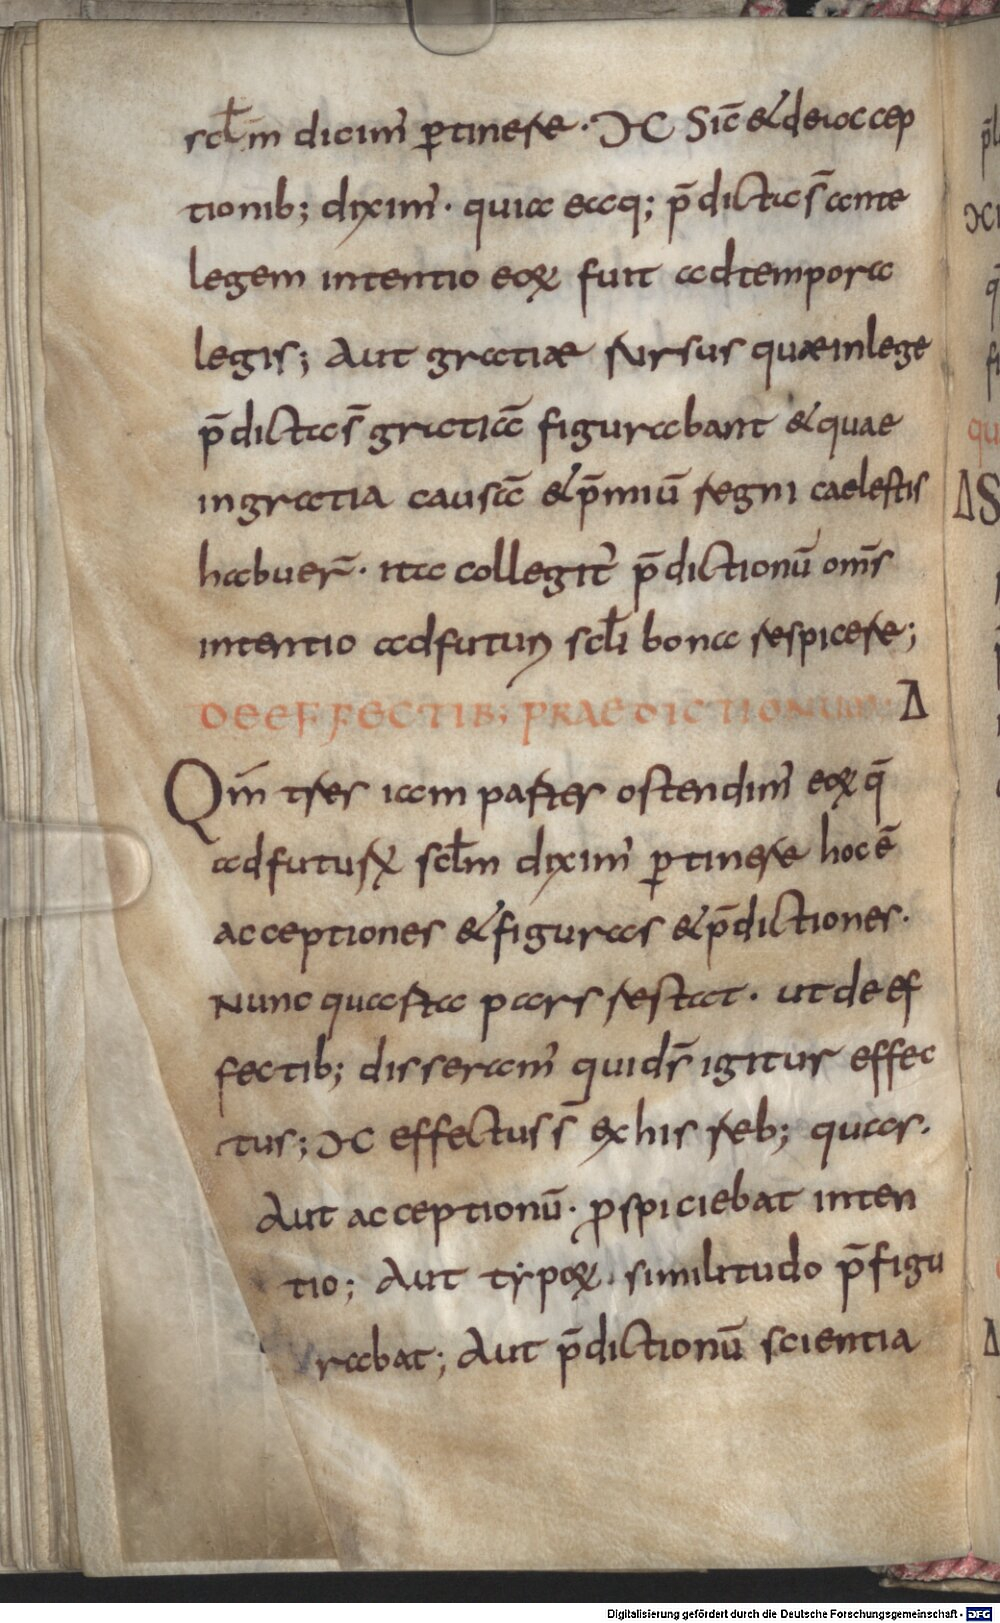 scl̄m dicim̄ ꝑtinere · ƆC Sic̄ & deiaccep
tionib; diximꝰ · quia eaq; p̄dictas̄ ante
legem intentio eoꝝ fuit adtempora
legis; Aut gratiæ rursus quæ inlege
p̄dictas̄ gratiā figurabant & quae
ingratia causā & p̄miū regni caelestis
habuer̄ · ita collegit̄ p̄dictionū om̄s
intentio adfuturū scl̄i bona respicere;
DE EFFECTIB; PRAEDICTIONUM Δ
Qm̄ tres iam partes ostendimꝰ eoꝝ q̄
adfuturꝝ scl̄m diximꝰ ꝑtinere hoc ē
acceptiones & figuras & p̄dictiones ·
Nunc quarta pars restat · ut de ef
fectib; disseramꝰ quid r̄ igitur effec
tus; ƆC effectus s̄ ex his reb; quas ·
Aut acceptionū · ꝓspiciebat inten
tio; Aut typoꝝ · similitudo p̄figu
rabat; Aut p̄dictionū scientia
Digitalisierung gefördert durch die Deutsche Forschungsgemeinschaft - DFG